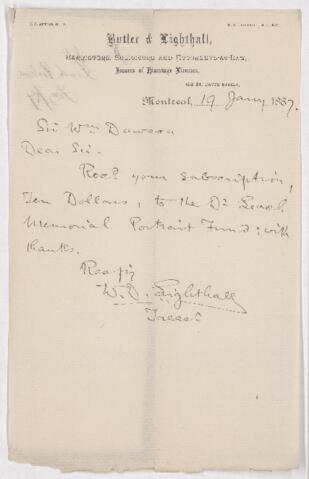 Butler & Lighthall,
Barristers, Solicitors and Attorneys-at-Law,
Issuers of Marriage Licenses,
Montreal, 19 Jany 1887
Sir Wm Dawson
Dear Sir.
Recd your subscription,
Ten Dollars, to the Dr
Memorial Portrait Fund; with
thanks.
Resply
W. D. Lighthall
Treasr